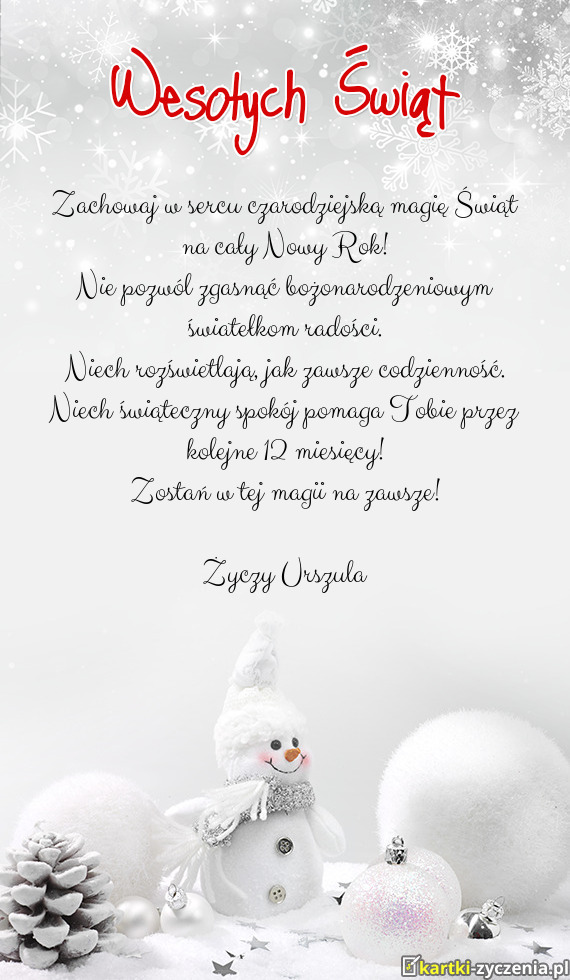 Wesołych Świąt
Zachowaj w sercu czarodziejską magię Świąt
na cały Nowy Rok!
Nie pozwól zgasnąć bożonarodzeniowym
światełkom radości.
Niech rozświetlają, jak zawsze codzienność.
Niech świąteczny spokój pomaga Tobie przez
kolejne 12 miesięcy!
Zostań w tej magii na zawsze!
Życzy Urszula
kartki-zyczenia.pl